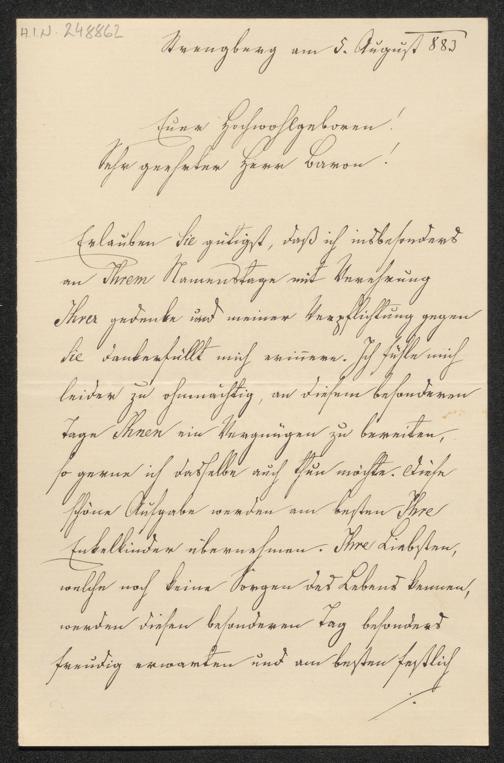 H.I.N. 248862
Strengberg am 5. August 883
Euer Hochwohlgeboren!
Sehr geehrter Herr Baron!
Erlauben Sie gütigst, daß ich insbesonders
an Ihrem Namenstage mit Verehrung
Ihrer gedenke und meiner Verpflichtung gegen
Sie dankerfüllt mich erinnere. Ich fühle mich
leider zu ohnmächtig, an diesem besonderen
Tage Ihnen ein Vergnügen zu bereiten,
so gerne ich dasselbe auch thun möchte. Diese
schöne Aufgabe werden am besten Ihre
Enkelkinder übernehmen. Ihre Liebsten,
welche noch keine Sorgen des Lebens kennen,
werden diesen besonderen Tag besonders
freudig erwarten und am besten festlich
./.